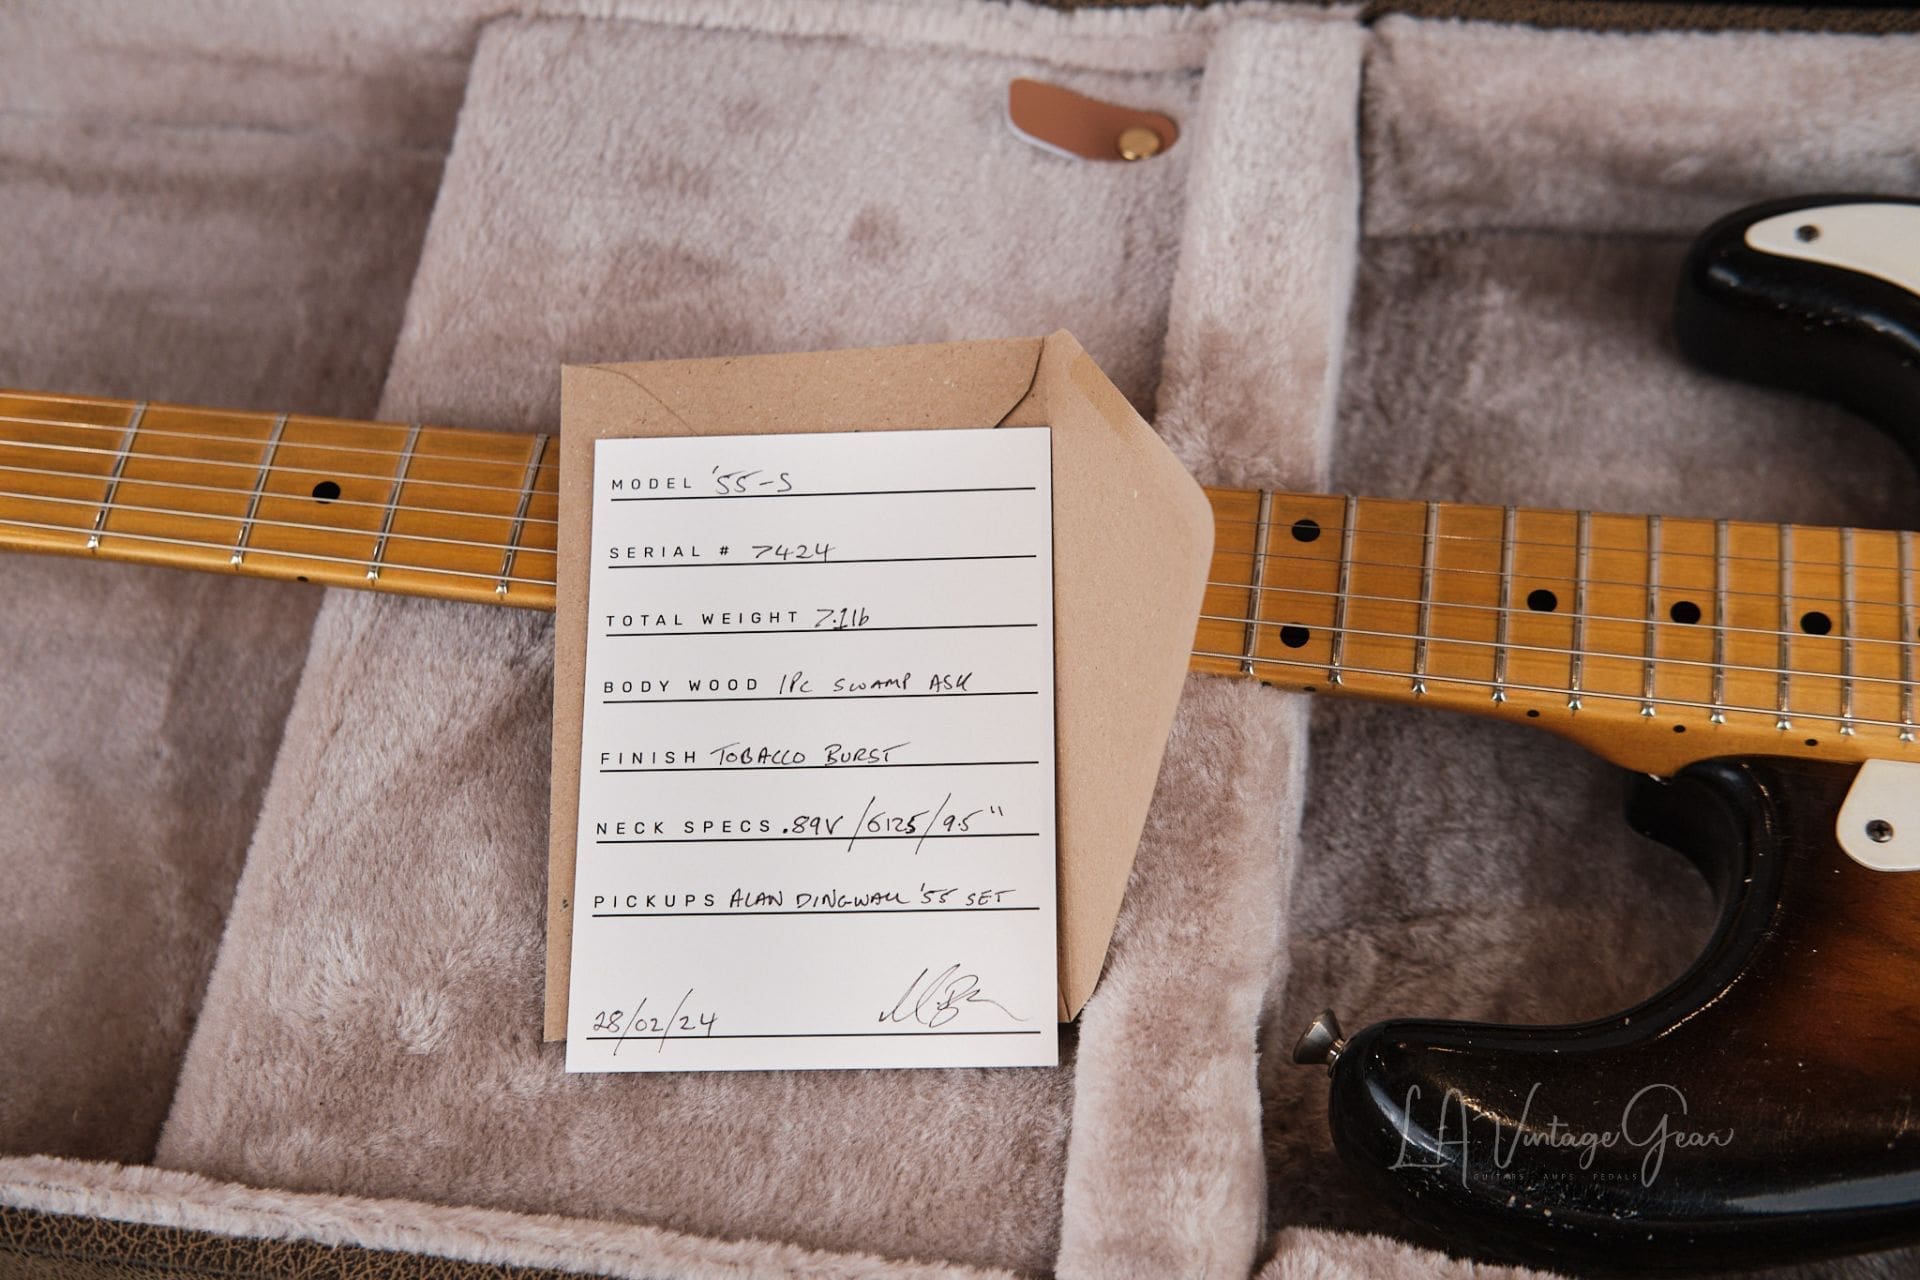 MODEL '55-S
SERIAL # 7424
TOTAL WEIGHT 7.1lb
BODY WOOD 1PC SWAMP ASH
FINISH TOBACCO BURST
NECK SPECS .89V/6125/9.5"
PICKUPS ALAN DINGWALL '55 SET
28/02/24
LA Vintage Gear
GUITARS AMPS PEDALS